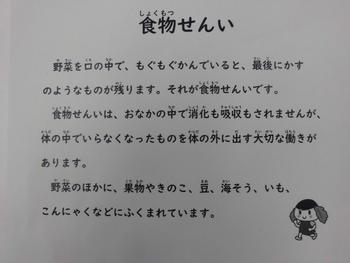 食物せんい
野菜を口の中で、もぐもぐかんでいると、最後にかす
のようなものが残ります。それが食物せんいです。
食物せんいは、おなかの中で消化も吸収もされませんが、
体の中でいらなくなったものを体の外に出す大切な働きが
あります。
野菜のほかに、果物やきのこ、豆、海そう、いも、
こんにゃくなどにふくまれています。